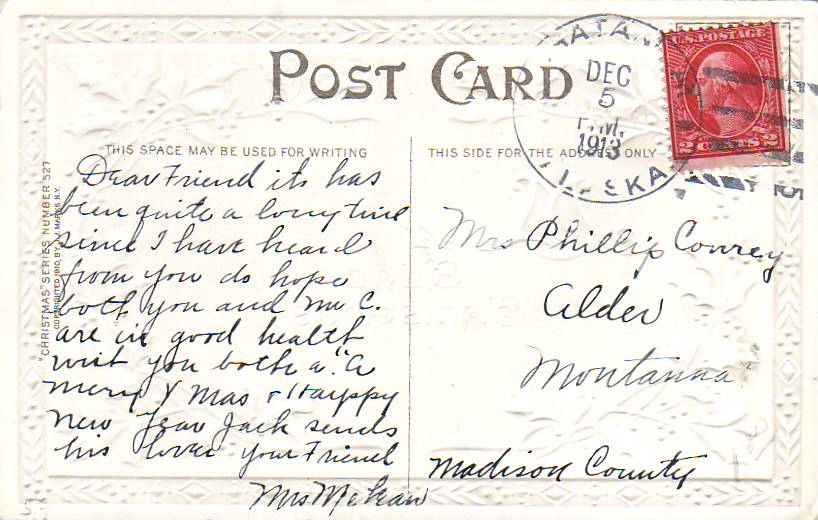 POST CARD
THIS SPACE MAY BE USED FOR WRITING
THIS SIDE FOR THE ADDRESS ONLY
"CHRISTMAS" SERIES NUMBER 527
COPYRIGHTED 1910 BY MARKS N.Y.
DEC
5
P.M.
1913
U.S. POSTAGE
2 CENTS 2
Dear Friend its has
been quite a long time
since I have heard
from you do hope
both you and Mr C.
are in good health
wish you both a "A
Merry X Mas & Happy
New Year Jack sends
his love your Friend
Mrs McLean
Mrs Phillip Conrey
Alder
Montanna
Madison County